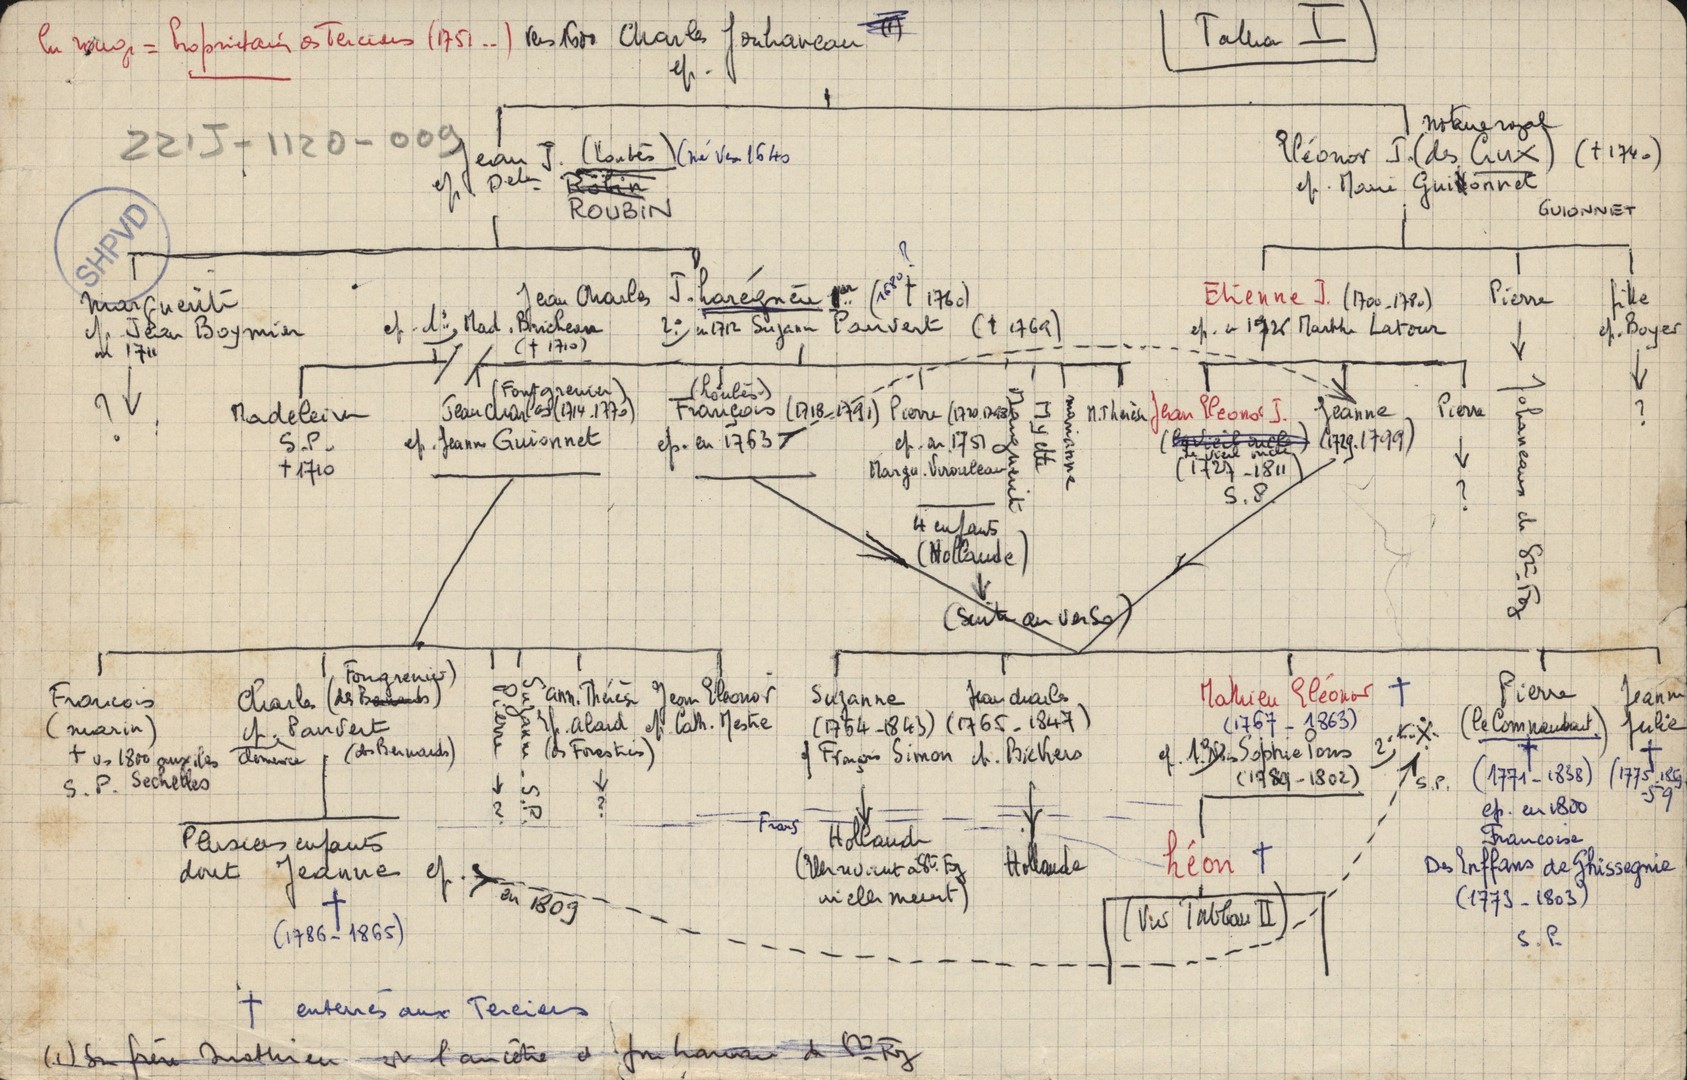 En rouge = Propriétaires des Terciers (1751 ..) vers 1600 Charles Jouhaneau (1)
ep.
Tableau I
221J-1120-009
SHPVD
Jean J. (Loubès) (né vers 1640
ep. Delle Robin
ROUBIN
notaire royal
Eléonor J. (des Crux) († 1740)
ep. Marie Guionnet
GUIONNET
Marguerite
ep. Jean Boymier
en 1711
?
Jean Charles J. Larégnère 1er (1680? † 1760)
ep. 1º) Mad. Bricheau
(† 1710)
2º) en 1712 Suzann Pauvert († 1769)
Etienne J. (1700-1780)
ep. en 1726 Marthe Latour
Pierre
Johaneaux de Ste-Foy
fille
ep. Boyer
?
Madeleine
S.P.
† 1710
(Fontgrenier)
Jean Charles (1714-1770)
ep. Jeanne Guionnet
(Loubès)
François (1718-1791)
ep. en 1763
Pierre
ep. en 1751
Margu. Virouleau
4 enfants
(Hollande)
(Suite au verso)
Marguerite
Marianne
M. Thérèse
Jean Eléonor J.
(le vieil oncle)
le vieil oncle
(1727-1811)
S.P.
Jeanne
(1729-1799)
Pierre
?
François
(marin)
† vs 1800 aux iles
Sechelles
S.P.
Fongrenier)
Charles (des Bernards)
ep. Pauvert
Clémence
(des Bernards)
Pierre
?
Suzanne
S.P.
Ann. Thérèse
ep. Alard
(des Forestries)
?
Jean Eléonor
ep. Cath. Mestre
Suzanne
(1764-1843)
ep François Simon
Jean Charles
(1765-1847)
ep. Bichers
Mathieu Eléonor †
(1767-1863)
ep. 1º) Sophie Pons
(1780-1802)
2º)
S.P.
Pierre
(le Commandant)
†
(1771-1838)
ep. en 1800
Françoise
Des Enffans de Ghissegnie
(1773-1803)
S.P.
Jeanne
Julie
†
Plusieurs enfants
dont Jeanne ep.
en 1809
†
(1786-1865)
Frans
Hollande
Hollande
Léon †
(Voir Tableau II)
† enterrés aux Terciers
(1) Son frère Mathieu est l'ancêtre des Jouhaneau de Ste-Foy